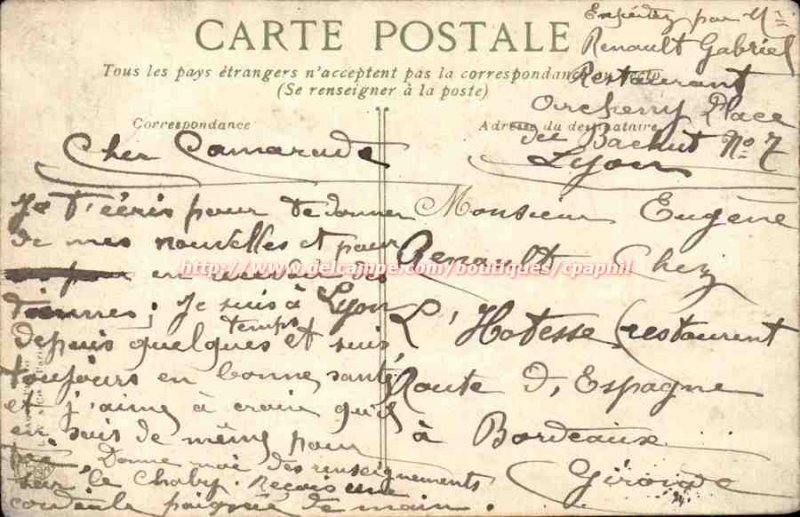 CARTE POSTALE
Tous les pays étrangers n'acceptent pas la correspondance
(Se renseigner à la poste)
Expédez par Mr
Renault Gabriel
Restaurant
Place
du Bachut No 7
Lyon
Correspondance
Adresse du destinataire
Cher Camarade
Je t'écris pour te donner
de mes nouvelles et pour
en recevoir des
tiennes; Je suis à Lyon
depuis quelques temps et suis
toujours en bonne santé
et j'aime à croire qu'il
en sait de même pour
toi. Donne moi des renseignements
sur le Chaby. Reçois une
cordiale poignée de main.
Monsieur Eugène
Renault Chez
L'Hotesse (restaurent
Route D, Espagne
à Bordeaux
Gironde
http://www.delcampe.com/boutiques/cpaphil